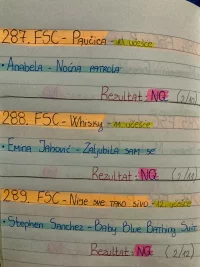 287. FSC - PAUČICA - 11. učešće
• Anabela - Noćna patrola
Rezultat: NQ (2/11)
288. FSC - Whisky - 11. učešće
• Emina Jahović - Zaljubila sam se
Rezultat: NQ (2/11)
289. FSC - Nije sve tako sivo - 12. učešće
• Stephen Sanchez - Baby Blue Bathing Suit
Rezultat: NQ (2/12)